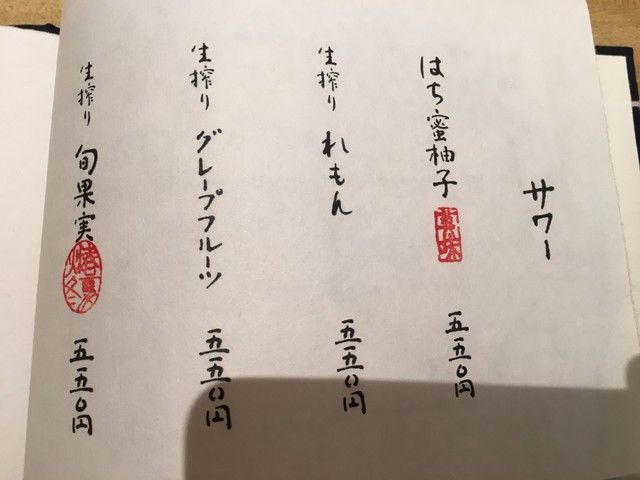 サワー
はち蜜柚子 五五〇円
生搾り れもん 五五〇円
生搾り グレープフルーツ 五五〇円
生搾り 旬果実 春夏秋冬 五五〇円